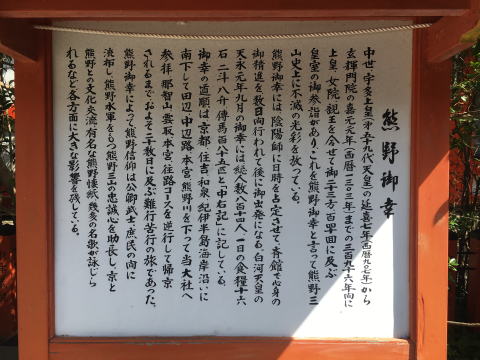 熊野御幸
中世、宇多上皇(第五十九代天皇)の延喜七年(西暦九〇七年)から
玄輝門院の嘉元元年(西暦一三〇三年)までの三百九十六年間に
上皇、女院、親王を合せて御二十三方、百軍団に及ぶ
皇室の御参詣があり、これを熊野御幸と言って熊野三
山史上に不滅の光彩を放っている。
熊野御幸には陰陽師に日時を占定させて、斉館で心身の
御精進を数日向行われて後に御出発になる。白河天皇の
天永元年九月の御幸には総人数八百十四人、一日の食糧十六
石二斗八升、傳馬百八十五匹と「中右記」に記している。
御幸の道順は京都、住吉、和泉、紀伊半島海岸沿いに
南下して田辺、中辺路、本宮、熊野川を下って当大社へ
参拝、那智山、雲取、本宮、往路コースを逆行して帰京
されるまで、およそ二十数日に及ぶ難行苦行の旅であった。
熊野御幸によって熊野信仰は公卿、武士、庶民の向に
流布し、熊野水軍をもつ熊野三山の忠誠心を助長し、京と
熊野との文化交流、有名な熊野懐紙、幾多の名歌が詠じら
れるなど各方面に大きな影響を残している。